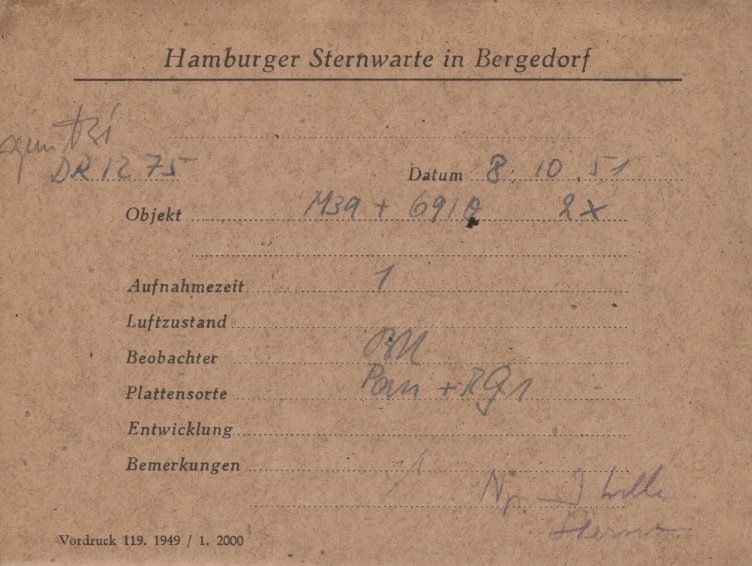 Hamburger Sternwarte in Bergedorf
DR 1275
Datum 8. 10. 51
Objekt M39 + 6910 2x
Aufnahmezeit 1
Luftzustand
Beobachter
Plattensorte Pan + RG1
Entwicklung
Bemerkungen
Vordruck 119. 1949 / 1. 2000